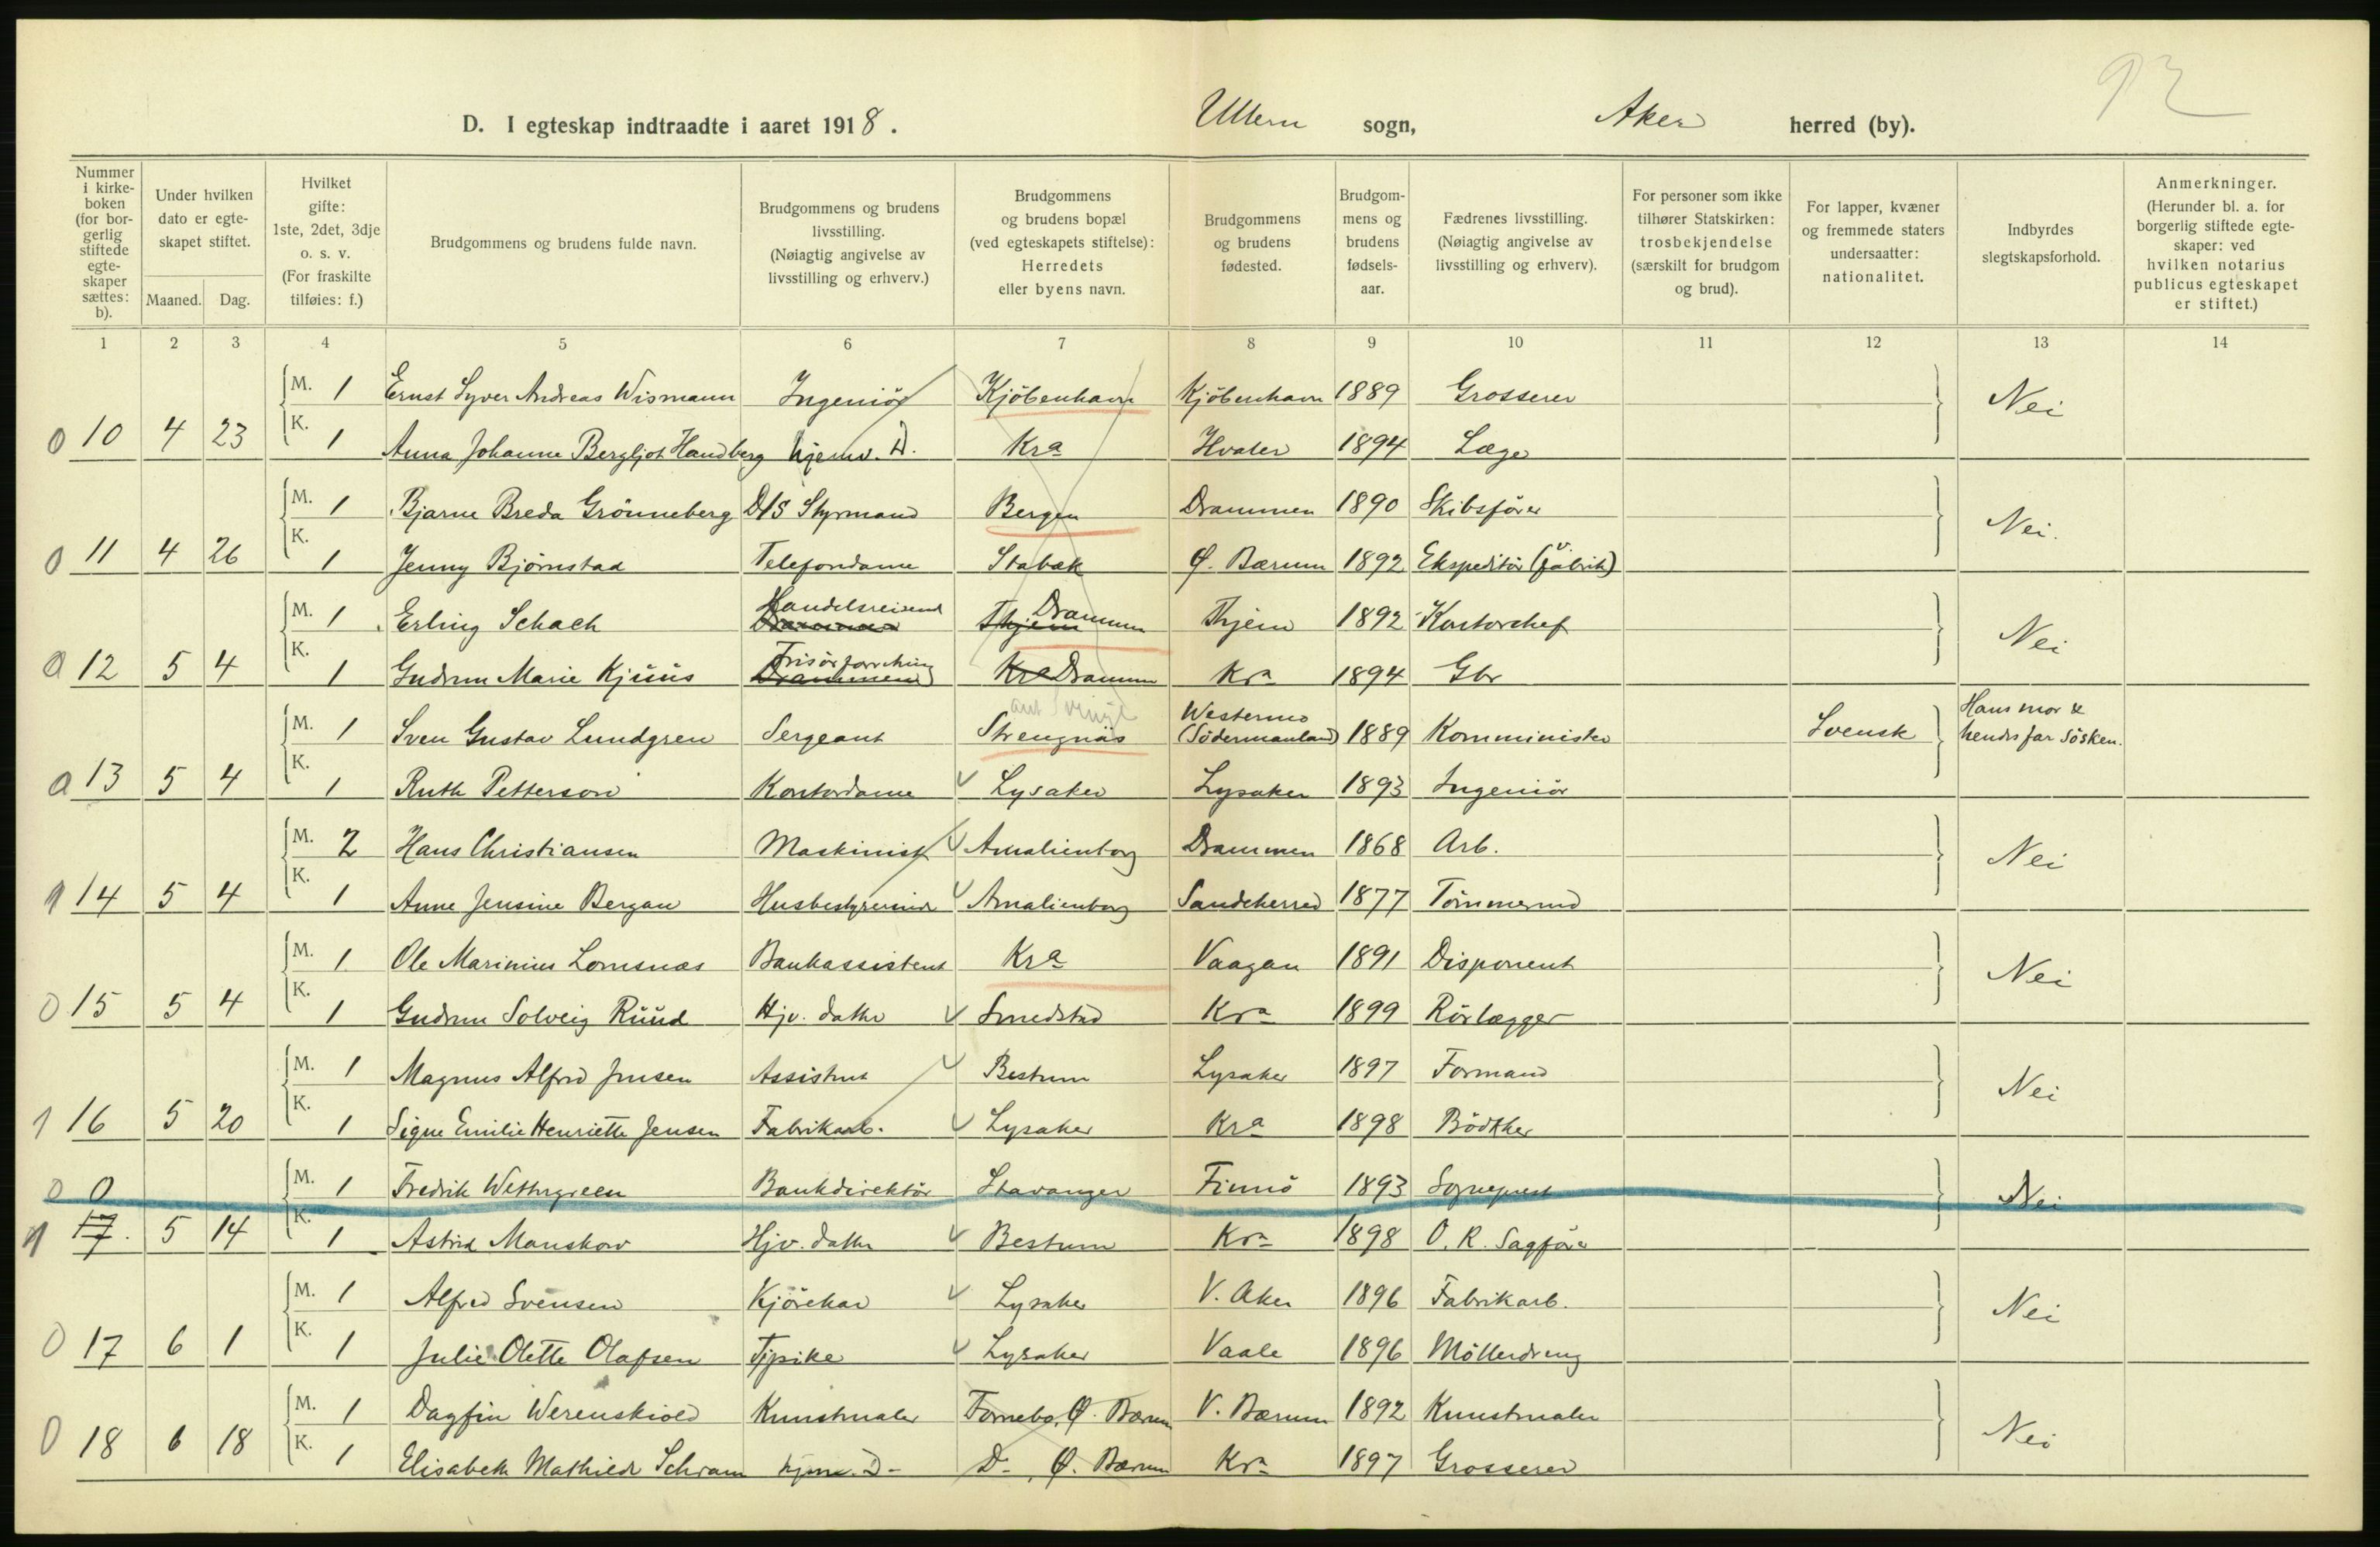 92
D. I egteskap indtraadte i aaret 1918. Ullern sogn, Aker herred (by).
Nummer i kirke-boken (for bor-gerlig stiftede egte-skaper sættes: b).
Under hvilken dato er egte-skapet stiftet.
Maaned. Dag.
Hvilket gifte: 1ste, 2det, 3dje o. s. v. (For fraskilte tilføies: f.)
Brudgommens og brudens fulde navn.
Brudgommens og brudens livsstilling. (Nøiagtig angivelse av livsstilling og erhverv.)
Brudgommens og brudens bopæl (ved egteskapets stiftelse): Herredets eller byens navn.
Brudgommens og brudens fødested.
Brudgom-mens og brudens fødsels-aar.
Fædrenes livsstilling. (Nøiagtig angivelse av livsstilling og erhverv).
For personer som ikke tilhører Statskirken: trosbekjendelse (særskilt for brudgom og brud).
For lapper, kvæner og fremmede staters undersaatter: nationalitet.
Indbyrdes slegtskapsforhold.
Anmerkninger. (Herunder bl. a. for borgerlig stiftede egte-skaper: ved hvilken notarius publicus egteskapet er stiftet.)
1 2 3 4 5 6 7 8 9 10 11 12 13 14
M. 1 Ernst Syver Andreas Wismann Ingeniør Kjöbenhavn Kjöbenhavn 1889 Grosserer Nei
0 10 4 23 K. 1 Anna Johanne Bergljot Handberg hjemv. D. Kra Hvaler 1894 Læge
M. 1 Bjarne Breda Grönneberg D/S Styrmand Bergen Drammen 1890 Skibsförer Nei.
0 11 4 26 K. 1 Jenny Björnstad Telefondame Stabæk Ø. Bærum 1892 Ekspeditör (fabrik)
M. 1 Erling Schack Handelsreisend Thjem Drammen Thjem 1892 Kontorchef Nei
0 12 5 4 K. 1 Gudrun Marie Kjuus Drammen Kra Drammen Kra 1894 Gbr
M. 1 Sven Gustav Lundgren Sergeant Strengnäs Westermo (Södermanland) 1889 Komminister Svensk Hans mor & hendes far Sösken.
0 13 5 4 K. 1 Ruth Petterson Kontordame Lysaker Lysaker 1893 Ingeniör
M. 2 Hans Christiansen Maskinist Amalienborg Drammen 1868 Arb. Nei
1 14 5 4 K. 1 Anne Jensine Bergan Husbestyrerinde Amalienborg Sandeherred 1877 Tömmermd
M. 1 Ole Marinius Lomsnæs Bankassistent Kra Vaagan 1891 Disponent Nei
0 15 5 4 K. 1 Gudrun Solveig Ruud Hjv. datter Smedstad Kra 1899 Rörlægger
M. 1 Magnus Alfred Jensen Assistent Bestum Lysaker 1897 Formand Nei
1 16 5 20 K. 1 Signe Emilie Henriette Jensen Fabrikarb. Lysaker Kra 1898 Bödtker
0 0 M. 1 Fredrik Wettergreen Bankdirektör Stavanger Finnö 1893 Sogneprest Nei
1 17. 5 14 K. 1 Astrid Manskow Hjv. datter Bestum Kra 1898 O. R. Sagförer
M. 1 Alfred Svensen Kjörekar Lysaker V. Aker 1896 Fabrikarb. Nei
0 17 6 1 K. 1 Julie Olette Olafsen Tjpike Lysaker Vaale 1896 Möllerdreng
M. 1 Dagfin Werenskiold Kunstmaler Fornebo, Ø. Bærum V. Bærum 1892 Kunstmaler Nei
0 18 6 18 K. 1 Elisabeth Mathilde Schram hjmv. D- D-, Ø. Bærum Kra 1897 Grosserer